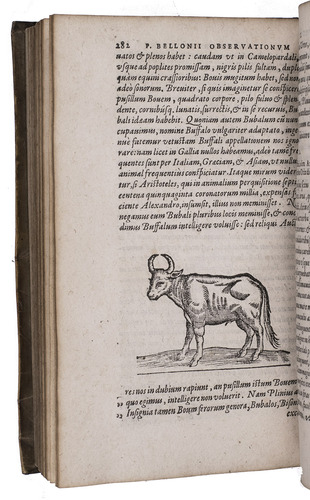 282 P. BELLONII OBSERVATIONVM
natos & plenos habet: caudam vt in Camelopardali,
vsque ad poplites promissam, nigris pilis fultam, duplo
quàm equini crassioribus: Bouis mugitum habet, sed non
adeo sonorum. Breuiter, si quis imaginetur se conspicere
pusillum Bouem, quadrato corpore, pilo fuluo & splen
dente, cornibúsq, lunatis, surrectis, & in se recuruis, Bu
bali ideam habebit. Quoniam autem Bubalum eũ nun
cupauimus, nomine Buffalo vulgariter adaptato, inge
nuè fatemur vetustam Buffali appellationem nos igno
rare: nam licet in Gallia nullos habeamus, adeò tamē fre
quentes sunt per Italiam, Græciam, & Asiam, vt nullum
animal frequentius conspiciatur. Itaque mirum videre
tur, si Aristoteles, qui in animalium perquisitione sept
centena quinquaginta coronatorum millia, expensas fa
ciente Alexandro, insumsit, illius non meminisset. Non
negamus eum Bubali pluribus locis meminisse, & cre
dimus Buffalum intelligere voluisse: sed reliqui
res nos in dubium rapiunt, an pusillum istum Bouem
quo egimus, intelligere non voluerit. Nam Plinius
Insignia tamen Boum ferorum genera, Bubalos,